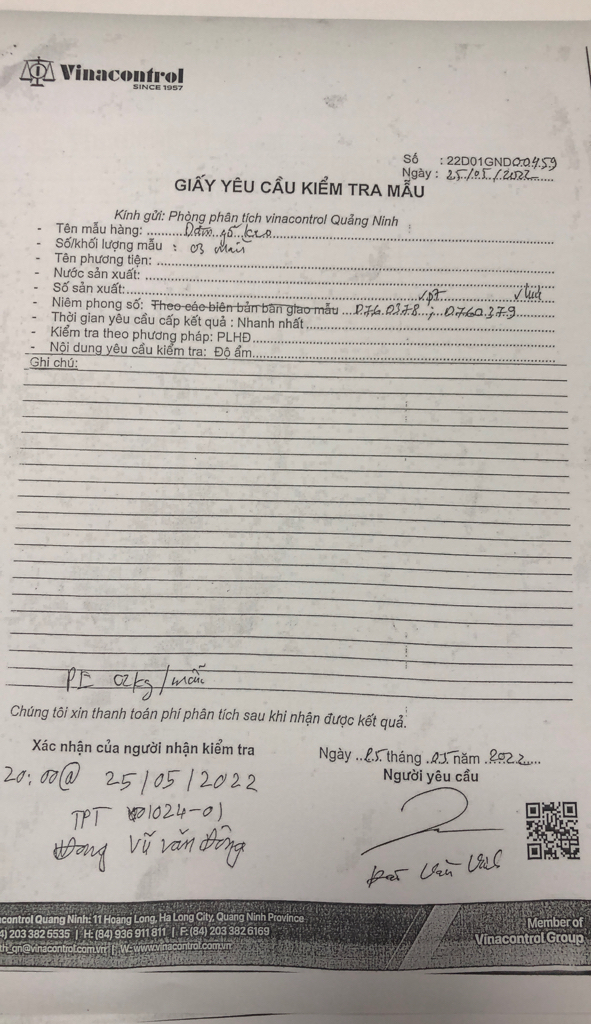 Vinacontrol
SINCE 1957
Số : 22D01GND00459
Ngày : 25/05/2022
GIẤY YÊU CẦU KIỂM TRA MẪU
Kính gửi: Phòng phân tích vinacontrol Quảng Ninh
- Tên mẫu hàng: Dăm gỗ keo
- Số/khối lượng mẫu : 03 mẫu
- Tên phương tiện:
- Nước sản xuất:
- Số sản xuất:
- Niêm phong số: Theo các biên bản bàn giao mẫu 0760378 ; 0760379
- Thời gian yêu cầu cấp kết quả : Nhanh nhất
- Kiểm tra theo phương pháp: PLHĐ
- Nội dung yêu cầu kiểm tra: Độ ẩm
Ghi chú:
PE 02kg/mẫu
Chúng tôi xin thanh toán phí phân tích sau khi nhận được kết quả.
Xác nhận của người nhận kiểm tra
Ngày 25 tháng 05 năm 2022
Người yêu cầu
20:00 @ 25/05/2022
TPT 01024-01
Vũ Văn Đông
control Quang Ninh: 11 Hoang Long, Ha Long City, Quang Ninh Province
4) 203 382 5535 | H: (84) 936 911 811 | F: (84) 203 382 6169
th_qn@vinacontrol.com.vn | W: www.vinacontrol.com.vn
Member of
Vinacontrol Group